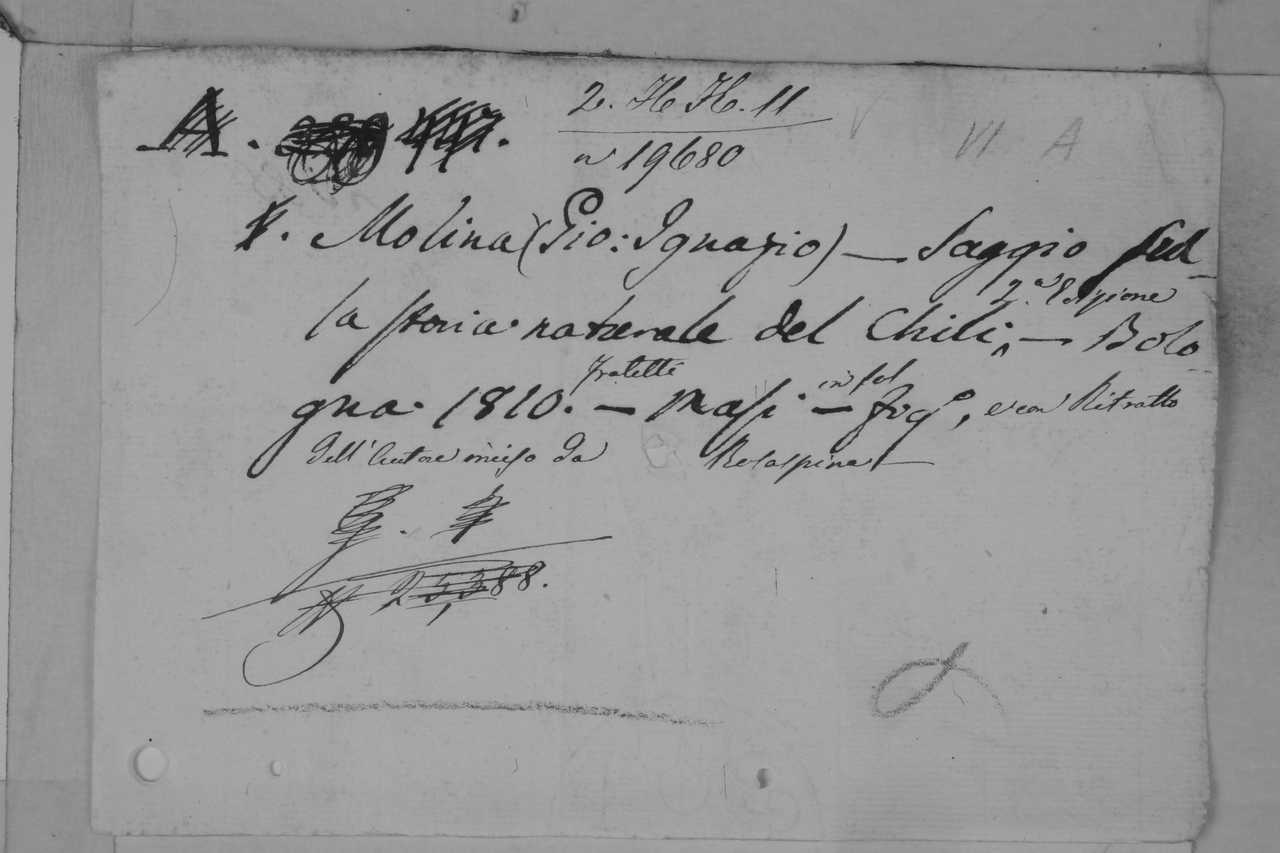 A. 2. H H. 11
n° 19680
V VI A
V. Molina (Gio: Ignazio) — Saggio sul-
la storia naturale del Chili, 2.a Edizione — Bolo-
gna 1810. — fratelli Masi — in fol fig.°, e con Ritratto
dell'Autore inciso da Rosaspina —
N 25,388.